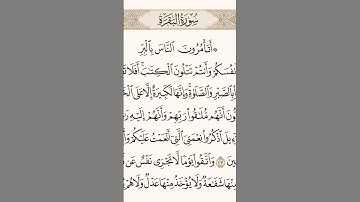 سُورَةُ البَقَرَةِ
۞ أَتَأْمُرُونَ ٱلنَّاسَ بِٱلْبِرِّ
نفُسَكُمْ وَأَنتُمْ تَتْلُونَ ٱلْكِتَٰبَ أَفَلَا
بِٱلصَّبْرِ وَٱلصَّلَوٰةِ وَإِنَّهَا لَكَبِيرَةٌ إِلَّا عَلَى
أَنَّهُم مُّلَٰقُوا۟ رَبِّهِمْ وَأَنَّهُمْ إِلَيْهِ
ٱذْكُرُوا۟ نِعْمَتِىَ ٱلَّتِىٓ أَنْعَمْتُ عَلَيْكُمْ
ينَ ٤٧ وَٱتَّقُوا۟ يَوْمًا لَّا تَجْزِى نَفْسٌ عَن
نْهَا شَفَٰعَةٌ وَلَا يُؤْخَذُ مِنْهَا عَدْلٌ وَلَا هُمْ